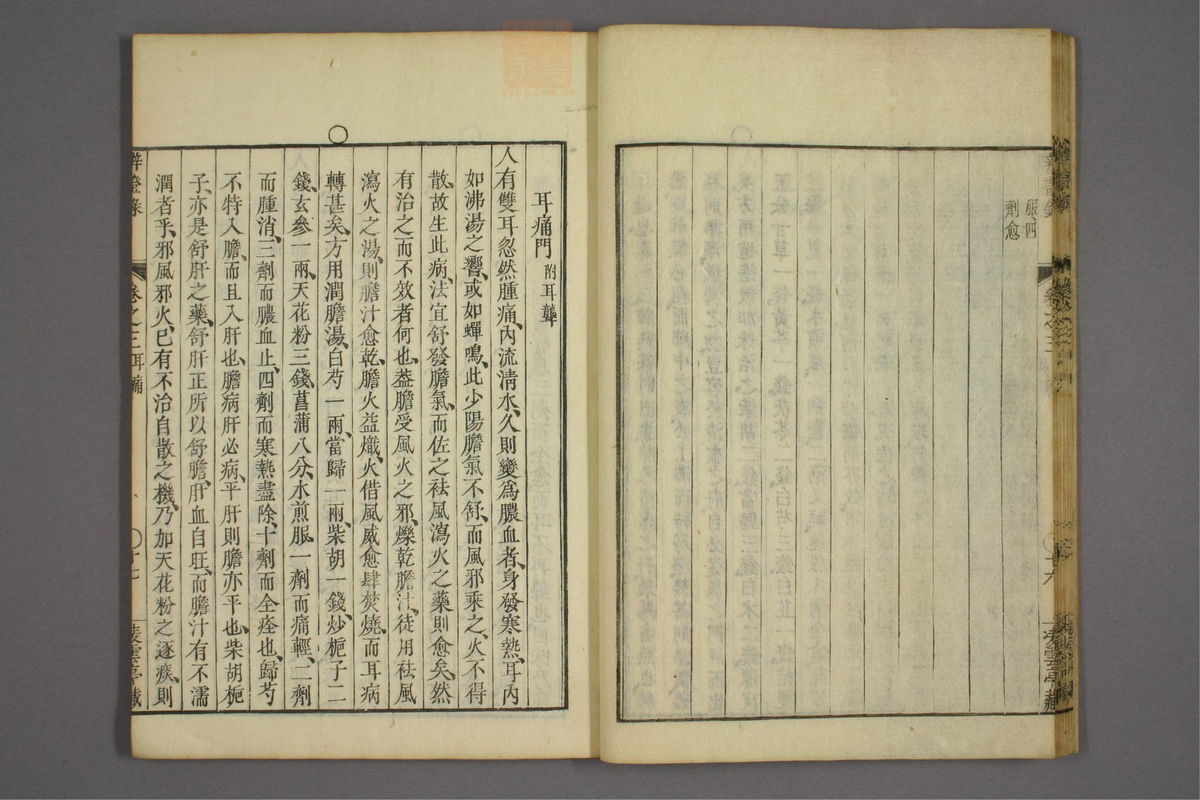 服四
劑愈
耳痛門 附耳聾
人有雙耳忽然腫痛、內流清水、久則變爲膿血者、身發寒熱、耳內
如沸湯之響、或如蟬鳴、此少陽膽氣不舒、而風邪乘之、火不得
散、故生此病、法宜舒發膽氣、而佐之祛風瀉火之藥則愈矣、然
有治之而不效者何也、蓋膽受風火之邪、爍乾膽汁、徒用祛風
瀉火之湯、則膽汁愈乾、膽火益熾、火借風威愈肆焚燒、而耳病
轉甚矣、方用潤膽湯、白芍一兩、當歸一兩、柴胡一錢、炒梔子二
錢、玄參一兩、天花粉三錢、菖蒲八分、水煎服、一劑而痛輕、二劑
而腫消、三劑而膿血止、四劑而寒熱盡除、十劑而全痊也、歸芍
不特入膽、而且入肝也、膽病肝必病、平肝則膽亦平也、柴胡梔
子、亦是舒肝之藥、舒肝正所以舒膽、肝血自旺、而膽汁有不濡
潤者乎、邪風邪火、已有不治自散之機、乃加天花粉之逐痰、則
辨證錄 卷之三耳痛 十七 凌雲亭藏